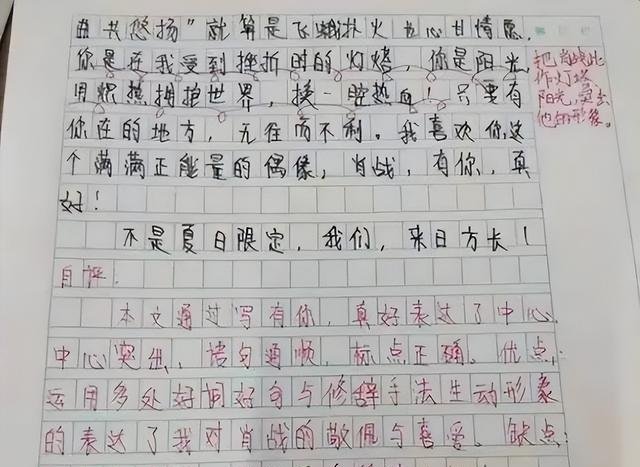 曲共悠扬”就算是飞蛾扑火也心甘情愿，
你是在我受到挫折时的灯塔，你是阳光，
用炽热拥护世界，换一腔热血！只要有
你在的地方，无往而不利。我喜欢你这
个满满正能量的偶像，肖战，有你，真
好！
不是夏日限定，我们，来日方长！
把肖战比
作灯塔
阳光，突出
他的形象。
自评：
本文通过写有你，真好表达了中心，
中心突出、语句通顺，标点正确。优点：
运用多处好词好句与修辞手法生动形象
的表达了我对肖战的敬佩与喜爱。缺点：